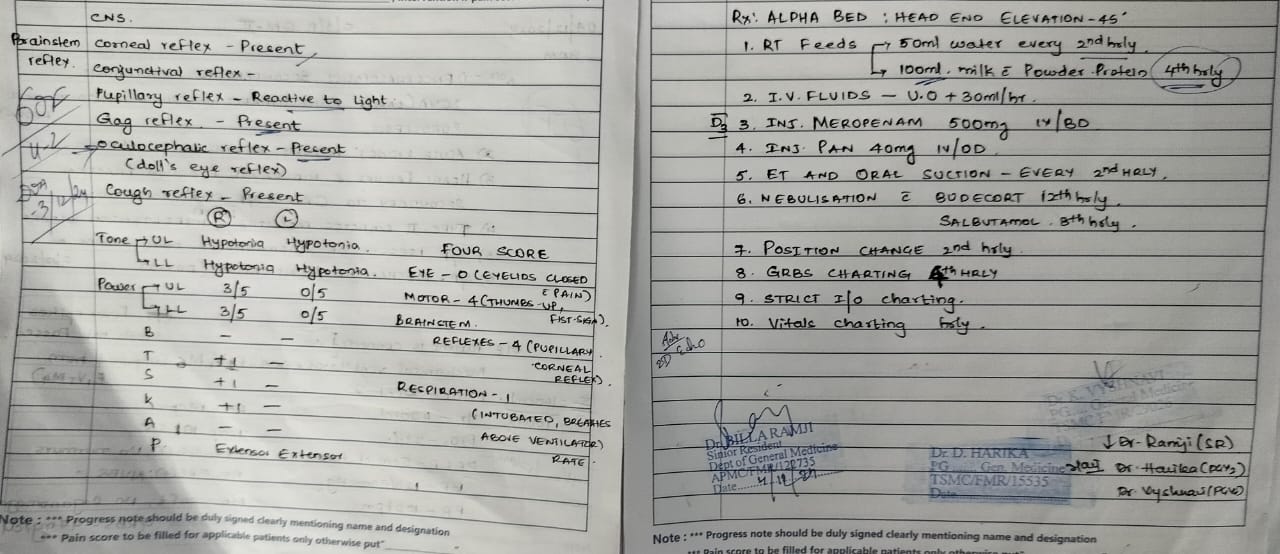 CNS.
Brainstem reflex.
Corneal reflex - Present
Conjunctival reflex -
Pupillary reflex - Reactive to light.
Gag reflex. - Present
Oculocephalic reflex - Present
(doll's eye reflex)
Cough reflex - Present
R L
Tone → UL Hypotonia Hypotonia.
↳ LL Hypotonia Hypotonia.
Power → UL 3/5 0/5
↳ LL 3/5 0/5
B - -
T +1 -
S +1 -
K +1 -
A - -
P. Extensor Extensor
FOUR SCORE
EYE - 0 (EYELIDS CLOSED
c̄ PAIN)
MOTOR - 4 (THUMBS-UP,
FIST-SIGN).
BRAINSTEM.
REFLEXES - 4 (PUPILLARY
CORNEAL
REFLEX).
RESPIRATION - 1
(INTUBATED, BREATHES
ABOVE VENTILATOR)
RATE.
Note : *** Progress note should be duly signed clearly mentioning name and designation
*** Pain score to be filled for applicable patients only otherwise put"
Rx: ALPHA BED : HEAD END ELEVATION - 45°
1. RT Feeds → 50ml water every 2nd hrly.
↳ 100ml. milk c̄ Powder Protein 4th hrly
2. I.V. FLUIDS - U.O + 30ml/hr.
D3 3. INJ. MEROPENAM 500mg IV/BD
4. INJ. PAN 40mg IV/OD.
5. ET AND ORAL SUCTION - EVERY 2nd HRLY.
6. NEBULISATION c̄ BUDECORT 12th hrly.
SALBUTAMOL. 8th hrly.
7. POSITION CHANGE 2nd hrly.
8. GRBS CHARTING 4th HRLY
9. STRICT I/O charting.
10. Vitals charting hrly.
Adv
2D Echo
Dr. BILLA RAMJI
Sinior Resident
Dept of General Medicine
APMC/FMR/122735
Date
Dr. D. HARIKA
PG Gen. Medicine
TSMC/FMR/15535
Date
Dr. Ramji (SR)
Dr. Harika (PGY3)
Note : *** Progress note should be duly signed clearly mentioning name and designation
*** Pain score to be filled for applicable patients only otherwise put"